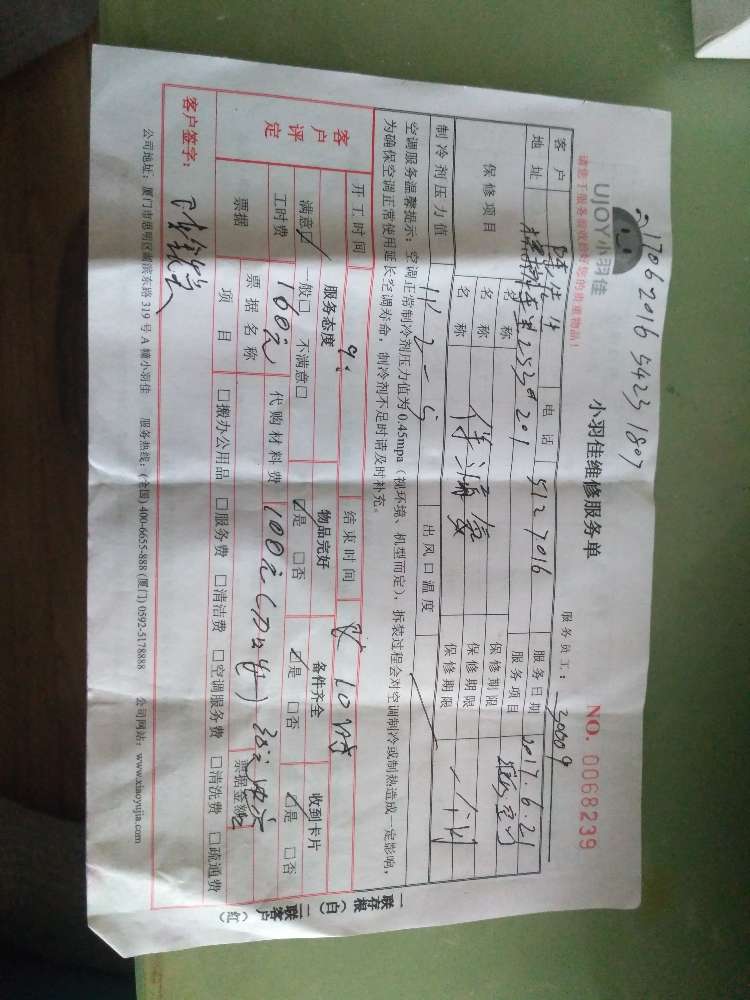 170620165423180
UJOY小羽佳
请您于服务验收前将您的贵重物品!
小羽佳维修服务单
服务员工:
NO. 0068239
客户
电话
5127016
服务日期
2017.6.21
地址
201
服务项目
保修项目
名称
保修期限
名称
保修期限
名称
保修期限
制冷剂压力值
出风口温度
空调服务温馨提示:空调正常制冷剂压力值为0.45mpa(视环境、机型而定),拆装过程会对空调制冷或制热造成一定影响,
为确保空调正常使用延长空调寿命,制冷剂不足时请及时补充。
开工时间
结束时间
客户评定
服务态度
物品完好
备件齐全
收到卡片
满意☑ 一般□ 不满意□
☑是 □否
☑是 □否
☑是 □否
工时费
160元
代购材料费
100元
票据
票据名称
票据金额
项目
□搬办公用品 □服务费 □清洁费 □空调服务费 □清洗费 □疏通费
客户签字:
公司地址:厦门市思明区湖滨东路319号A幢小羽佳 服务热线:(全国)400-6655-888 (厦门)0592-5178888 公司网站:www.xiaoyujia.com
一联存根(白)二联客户(红)